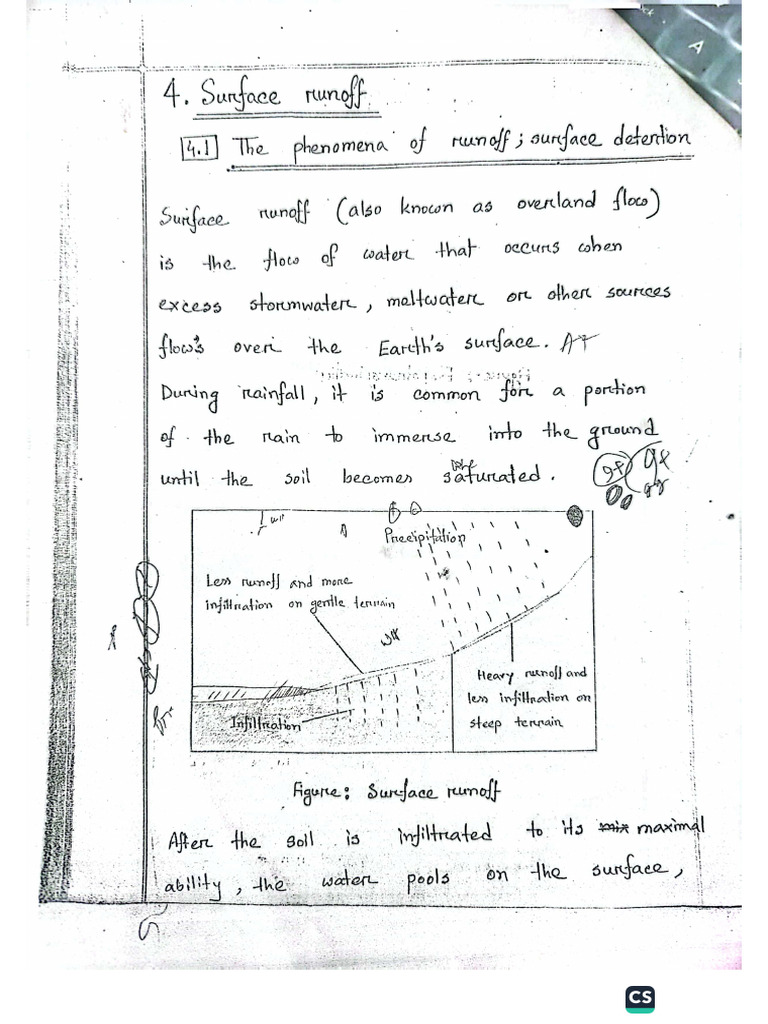 4. Surface runoff
4.1 The phenomena of runoff; surface detention
Surface runoff (also known as overland flow)
is the flow of water that occurs when
excess stormwater, meltwater or other sources
flow's over the Earth's surface.
During rainfall, it is common for a portion
of the rain to immerse into the ground
until the soil becomes saturated.
Precipitation
Less runoff and more
infiltration on gentle terrain
Heavy runoff and
less infiltration on
steep terrain
Infiltration
Figure: Surface runoff
After the soil is infiltrated to its maximal
ability, the water pools on the surface,
CS